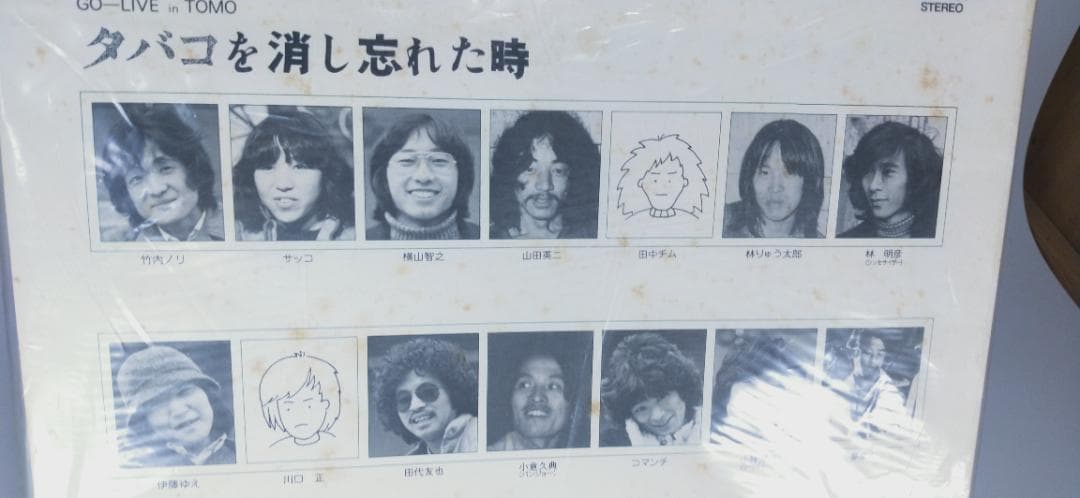 GO—LIVE in TOMO
STEREO
タバコを消し忘れた時
竹内ノリ
サッコ
横山智之
山田英二
田中チム
林りゅう太郎
林 明彦
(シンセサイザー)
伊藤ゆえ
川口 正
田代友也
小倉久典
(バンジョー)
コマンチ